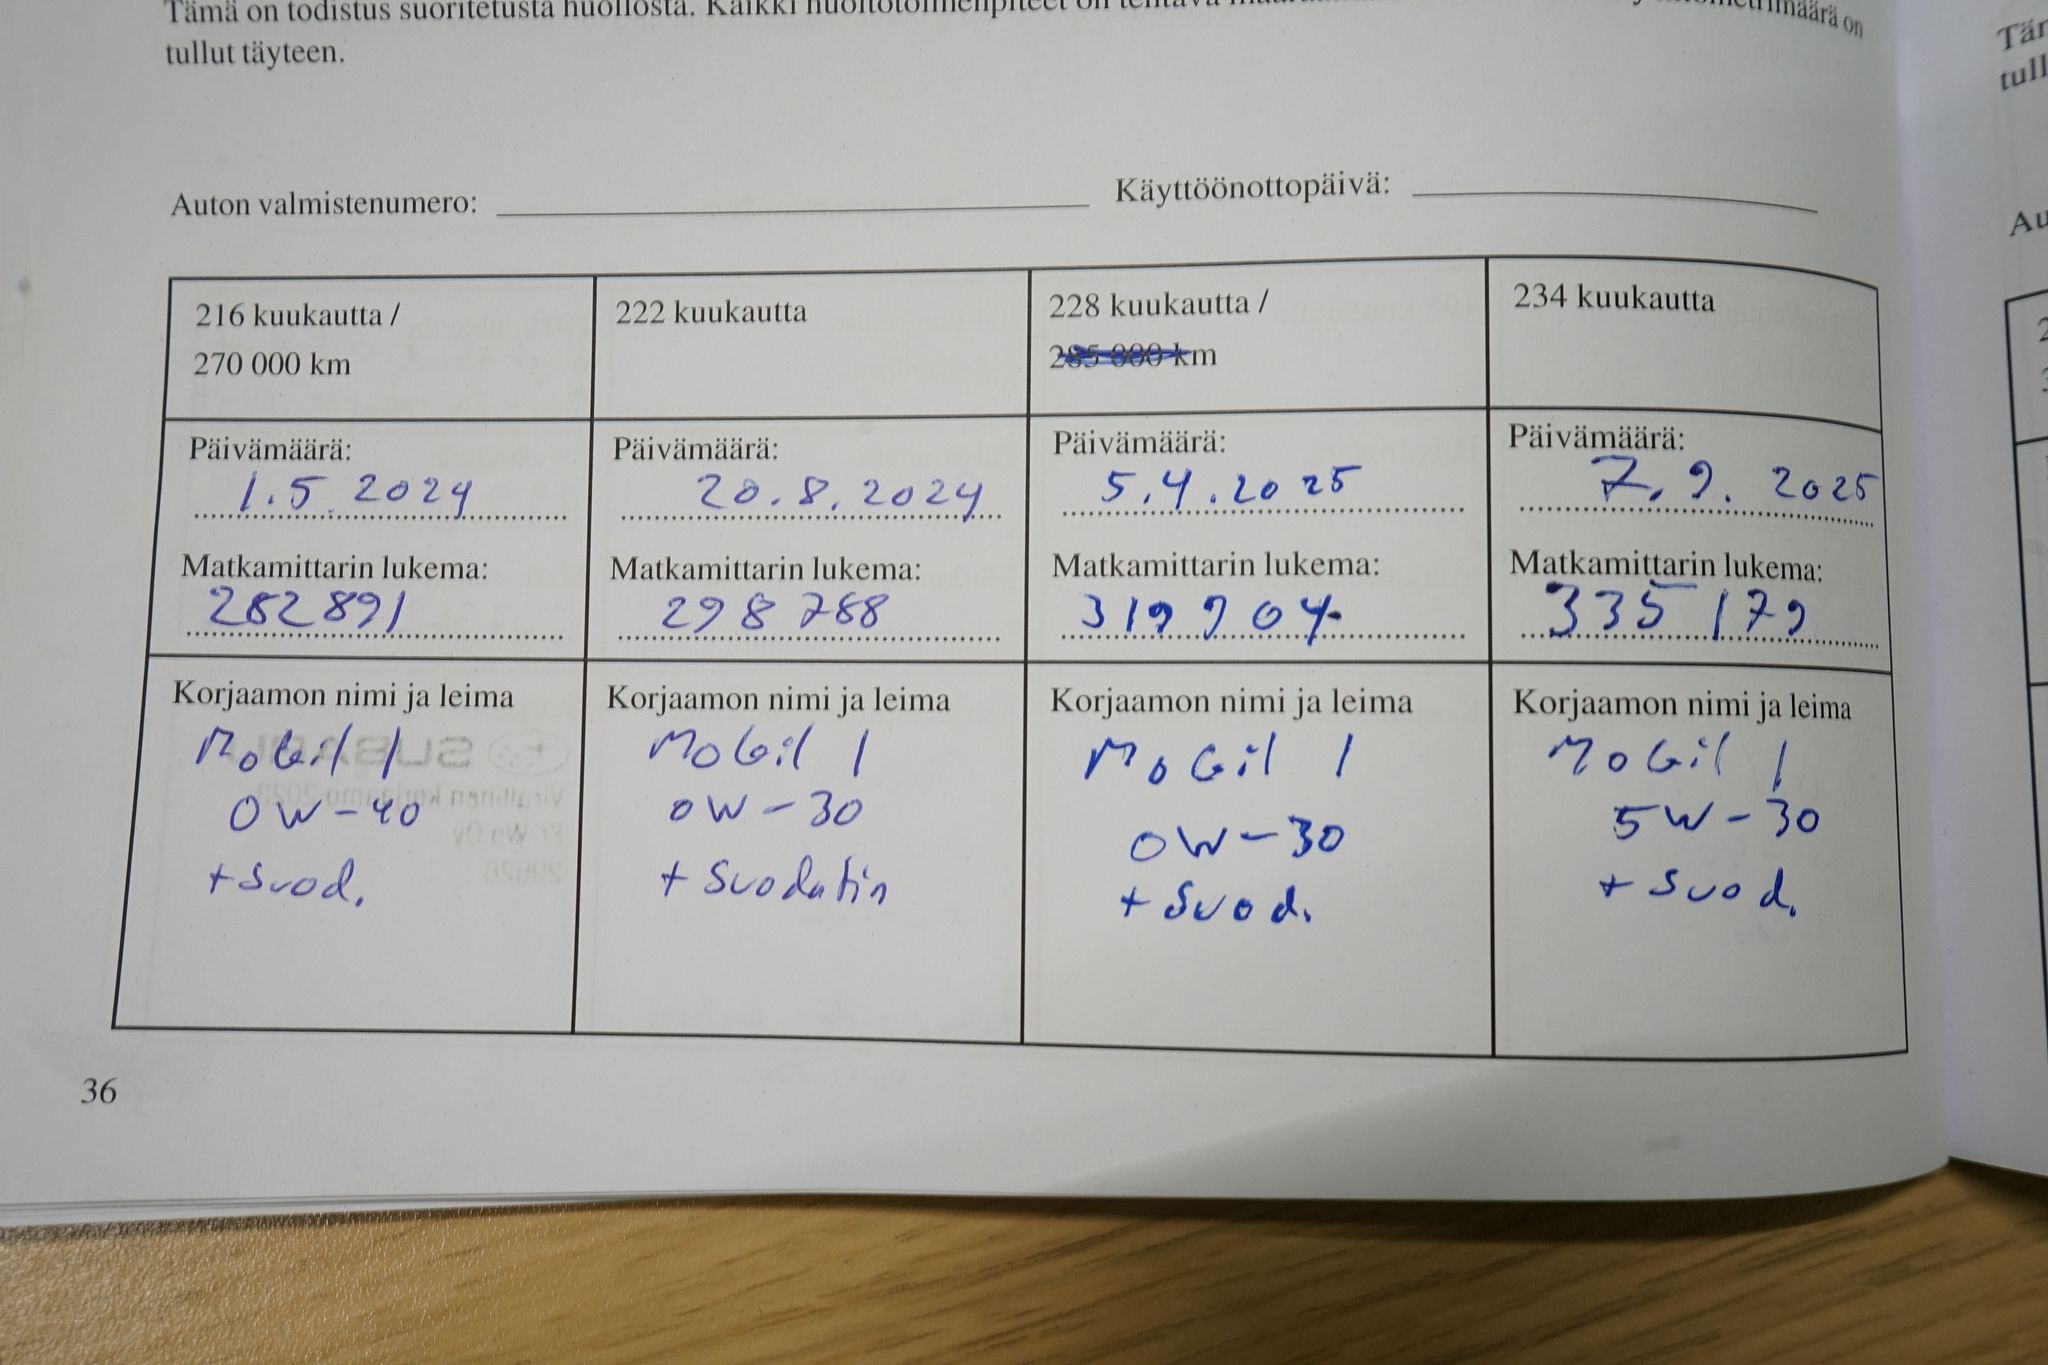 Tämä on todistus suoritetusta huollosta. Kaikki
määrä on
tullut täyteen.
Auton valmistenumero:
Käyttöönottopäivä:
216 kuukautta /
270 000 km
222 kuukautta
228 kuukautta /
285 000 km
234 kuukautta
Päivämäärä:
1.5.2024
Päivämäärä:
20.8.2024
Päivämäärä:
5.4.2025
Päivämäärä:
7.9.2025
Matkamittarin lukema:
282 891
Matkamittarin lukema:
298 788
Matkamittarin lukema:
319 904
Matkamittarin lukema:
335 179
Korjaamon nimi ja leima
Mobil 1
0W-40
+ suod.
Korjaamon nimi ja leima
Mobil 1
0W-30
+ suodatin
Korjaamon nimi ja leima
Mobil 1
0W-30
+ suod.
Korjaamon nimi ja leima
Mobil 1
5W-30
+ suod.
36